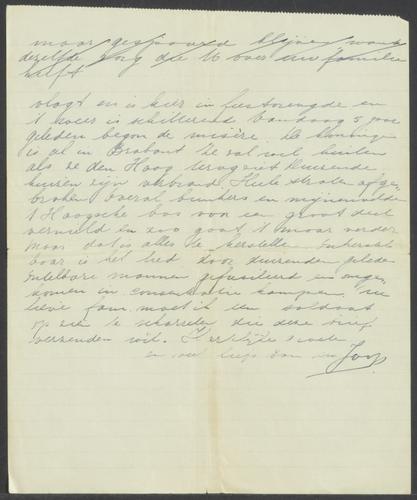 maar gespaard blijven want
dezelfde zorg die U over uw familie
helft
vlagt en is hier in feestvreugde en
't weer is schitterend Vandaag 5 jaar
geleden begon de misère. De Koningin
is al in Brabant Ze zal wel huilen
als ze den Haag terugziet Duizende
huizen zijn verbrand. Hele straten afge
broken overal bunkers en mijnenvelden
't Haagsche bos voor een groot deel
vernield en zoo gaat 't maar verder
maar dat is alles te herstellen. Onherstel
baar is het leed door duizenden
mannen gefusilleerd en omge
komen in concentratie kampen. Nu
lieve fam. moet ik een soldaat
op zien te scharrelen die deze brief
verzenden wil. Hartelijke groeten
en veel liefs van uw Joop